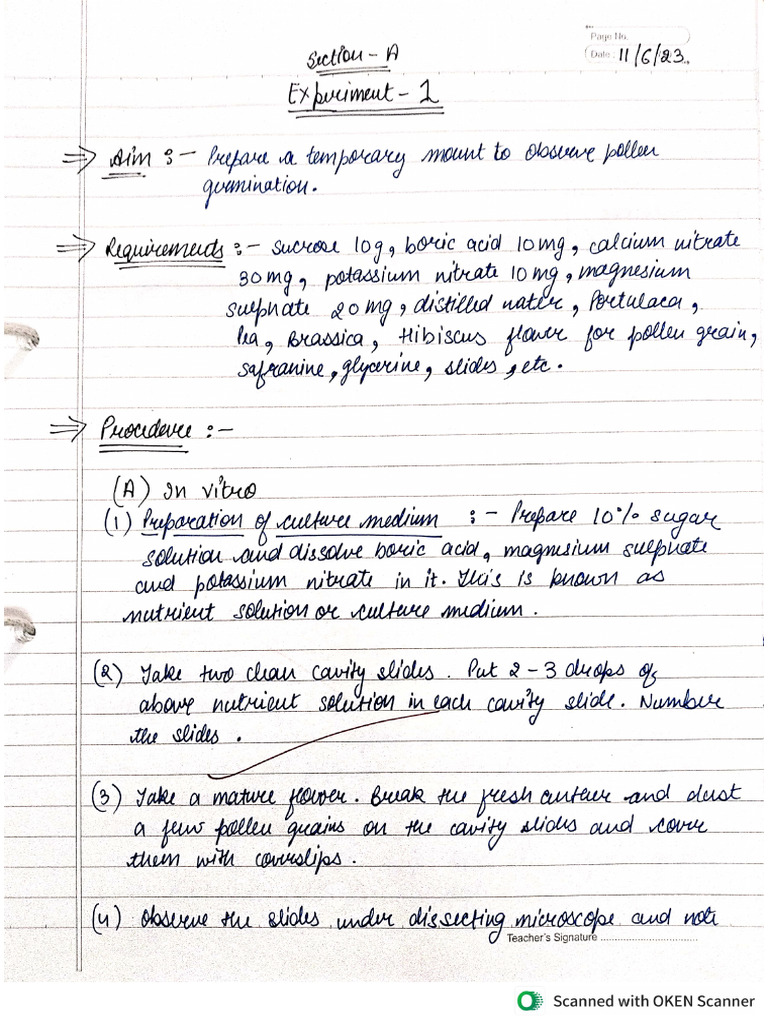 Page No.
Date : 11/6/23.
Section - A
Experiment - 1
⇒ Aim :- Prepare a temporary mount to observe pollen
germination.
⇒ Requirements :- Sucrose 10g, boric acid 10mg, calcium nitrate
30mg, potassium nitrate 10mg, magnesium
sulphate 20mg, distilled water, Portulaca,
Pea, Brassica, Hibiscus flower for pollen grain,
safranine, glycerine, slides, etc.
⇒ Procedure :-
(A) In vitro
(1) Preparation of culture medium :- Prepare 10% sugar
solution and dissolve boric acid, magnesium sulphate
and potassium nitrate in it. This is known as
nutrient solution or culture medium.
(2) Take two clean cavity slides. Put 2-3 drops of
above nutrient solution in each cavity slide. Number
the slides.
(3) Take a mature flower. Break the fresh anther and dust
a few pollen grains on the cavity slides and cover
them with coverslips.
(4) Observe the slides under dissecting microscope and note
Teacher's Signature ..............................
Scanned with OKEN Scanner